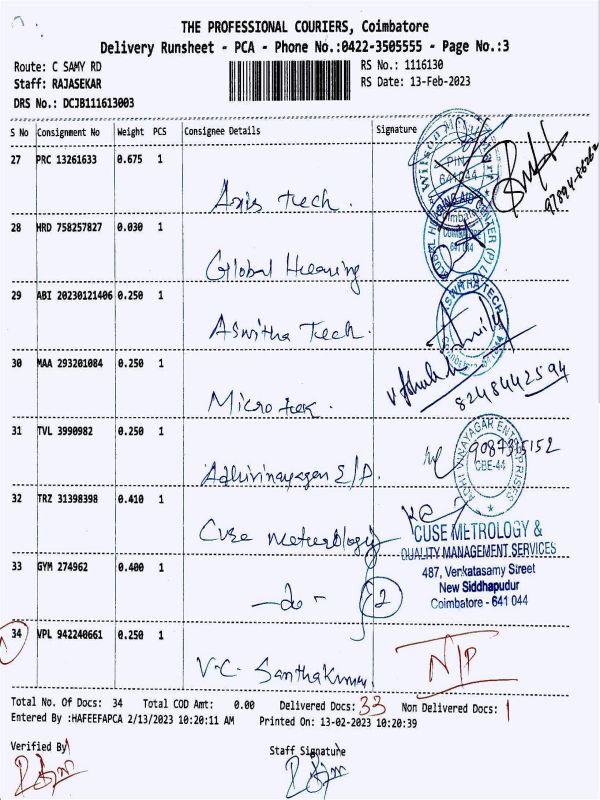 THE PROFESSIONAL COURIERS, Coimbatore
Delivery Runsheet - PCA - Phone No.:0422-3505555 - Page No.:3
Route: C SAMY RD
RS No.: 1116130
Staff: RAJASEKAR
RS Date: 13-Feb-2023
DRS No.: DCJB111613003
S No Consignment No Weight PCS Consignee Details Signature
27 PRC 13261633 0.675 1
Axis Tech.
28 HRD 758257827 0.030 1
Global Hearing
29 ABI 20230121406 0.250 1
Aswitha Tech.
30 MAA 293201084 0.250 1
8248442594
Micro tek.
31 TVL 3990982 0.250 1
9087315152
CBE-44
Adhivinayagan E/P.
32 TRZ 31398398 0.410 1
CUSE METROLOGY &
Cuse meteorology
QUALITY MANAGEMENT SERVICES
33 GYM 274962 0.400 1
487, Venkatasamy Street
New Siddhapudur
-do- 2
Coimbatore - 641 044
34 VPL 942240661 0.250 1
N/P
V.C. Santhakumar.
Total No. Of Docs: 34 Total COD Amt: 0.00 Delivered Docs: 33 Non Delivered Docs: 1
Entered By :HAFEEFAPCA 2/13/2023 10:20:11 AM Printed On: 13-02-2023 10:20:39
Verified By
Staff Signature